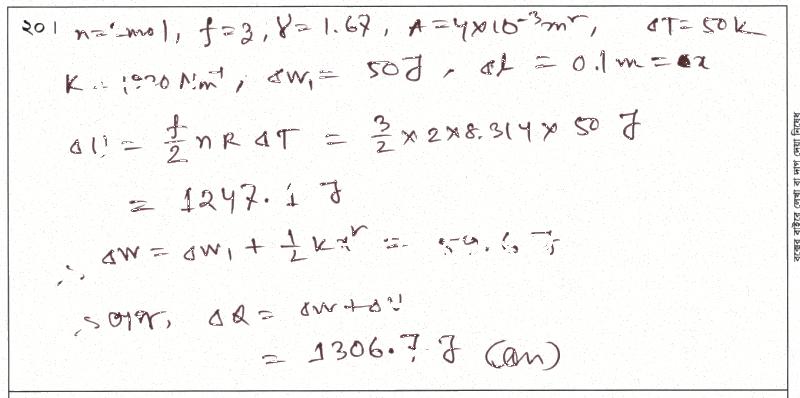 ২০। n = 2 mol, f = 3, γ = 1.67, A = 4×10⁻³ m², ΔT = 50 K
K = Nm⁻¹, ΔW₁ = 50 J, Δl = 0.1 m = x
ΔU = f/2 n R ΔT = 3/2 × 2 × 8.314 × 50 J
= 1247.1 J
∴ ΔW = ΔW₁ + 1/2 kx² =
ΔQ = ΔW + ΔU
= 1306.7 J (Ans)
বক্সের বাইরে লেখা বা দাগ দেয়া নিষেধ